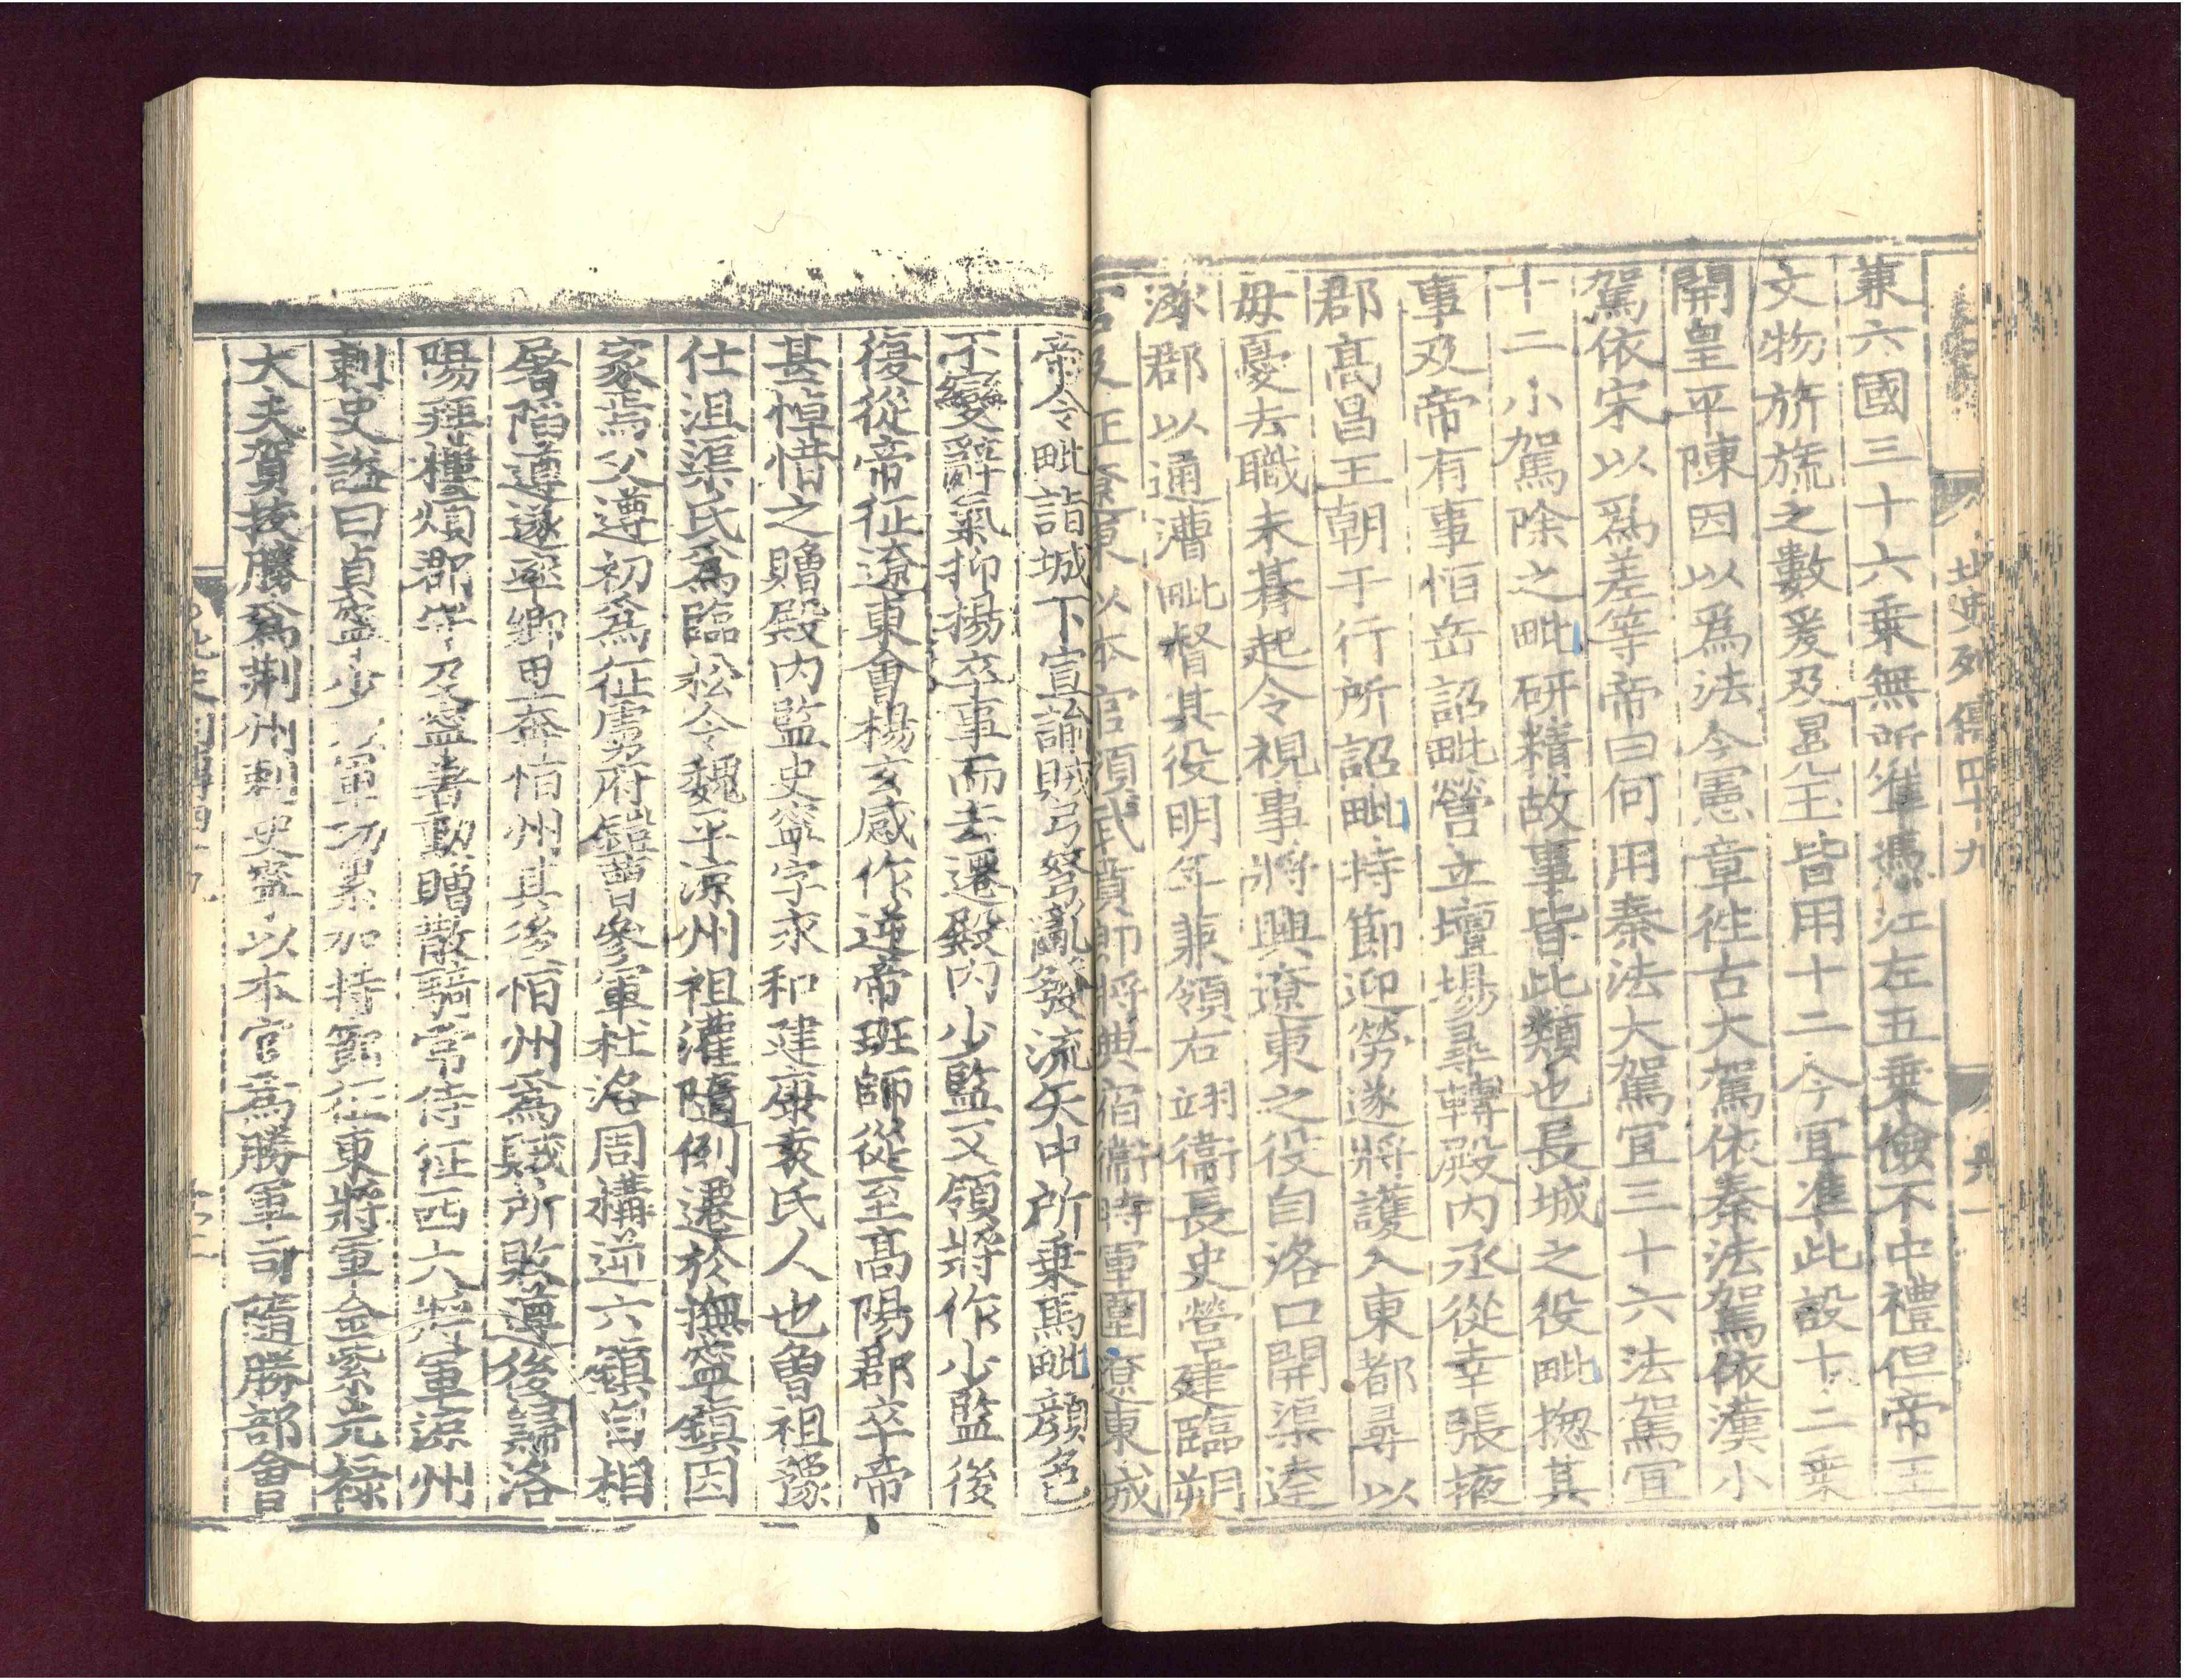 北史列傳四十九
兼六國三十六乗無所准馮江左五乗儉不中禮但帝王
文物旂旒之數爰及冕玉皆用十二今宜准此設十二乗
開皇平陳因以爲法令憲章徃古大駕依秦法駕依漢小
駕依宋以爲差等帝曰何用秦法大駕宜三十六法駕宜
十二小駕除之毗研精故事皆此類也長城之役毗揔其
事及帝有事恒岳詔毗營立壇場尋轉殿内丞從幸張掖
郡髙昌王朝于行所詔毗持節迎勞遂將護入東都尋以
母憂去職未朞起令視事將興遼東之役自洛口開渠逹
涿郡以通漕毗督其役明年兼領右翊衞長史營建臨朔
宫及征遼東以本官領武賁郎將典宿衞時軍圍遼東城
帝令毗詣城下宣諭賊弓弩亂發流矢中所乗馬毗顔色
不變辭氣抑揚卒事而去遷殿内少監又領將作少監後
復從帝征遼東會楊玄感作逆帝班師從至髙陽郡卒帝
甚悼惜之贈殿内監史寧字永和建康袁氏人也曽祖豫
仕沮渠氏爲臨松令魏平凉州祖灌隨例遷於撫寧鎮因
家焉父遵初爲征虜府鎧曹參軍杜洛周構逆六鎮自相
屠陷遵遂率鄉里奔恒州其後恒州爲賊所敗遵後歸洛
陽拜樓煩郡守及寧著勳贈散騎常侍征西大將軍凉州
刺史謚曰貞寧少以軍功累加持節征東將軍金紫光禄
大夫賀拔勝爲荆州刺史寧以本官爲勝軍司隨勝部會